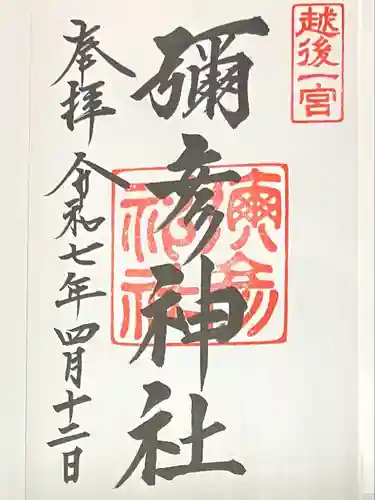 越後一宮
彌彦神社
奉拝
令和七年四月十二日